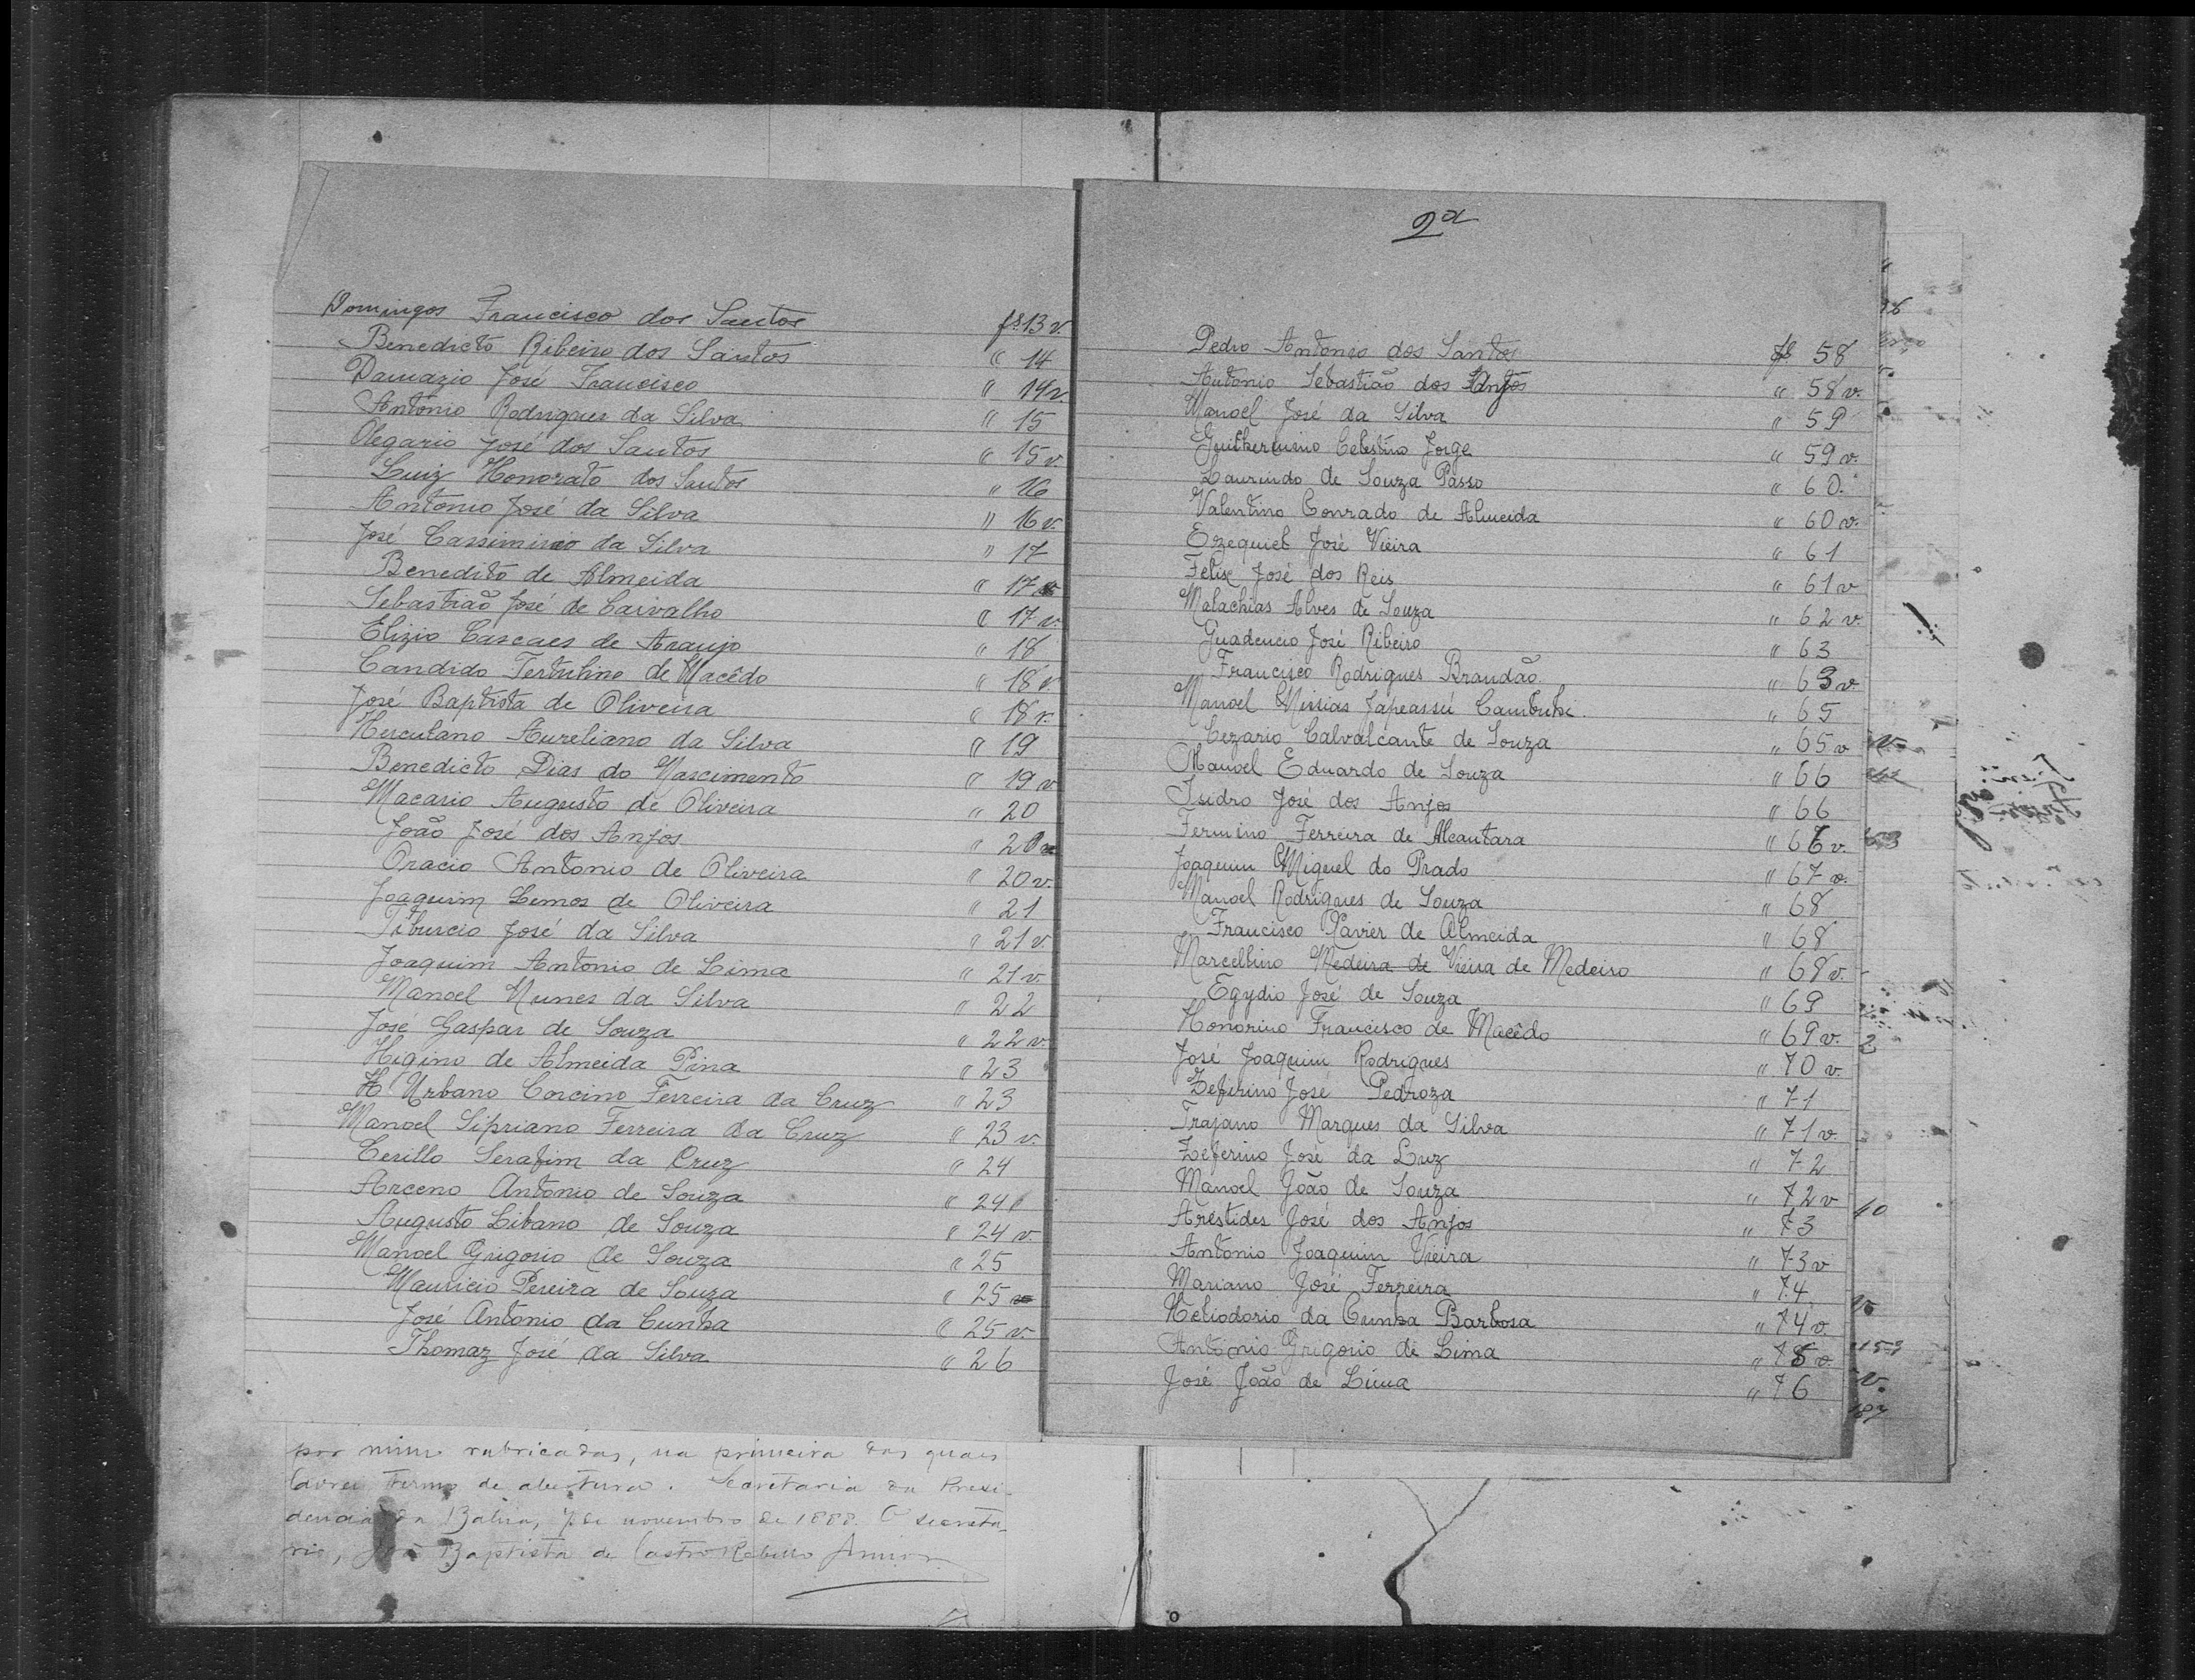 Domingos Francisco dos Santos fs. 13 v.
Benedicto Ribeiro dos Santos " 14
Damazio José Francisco " 14 v.
Antonio Rodrigues da Silva " 15
Olegario José dos Santos " 15 v.
Luiz Honorato dos Santos " 16
Antonio José da Silva " 16 v.
José Cassimiro da Silva " 17
Benedito de Almeida " 17
Sebastião José de Carvalho " 17 v.
Elizio Cascaes de Araujo " 18
Candido Tertulino de Macêdo " 18 v.
José Baptista de Oliveira " 18 v.
Herculano Aureliano da Silva " 19
Benedicto Dias do Nascimento " 19 v
Macario Augusto de Oliveira " 20
João José dos Anjos " 20
Oracio Antonio de Oliveira " 20 v.
Joaquim Lemos de Oliveira " 21
Tiburcio José da Silva " 21 v.
Joaquim Antonio de Lima " 21 v.
Manoel Nunes da Silva " 22
José Gaspar de Souza " 22 v.
Higino de Almeida Pina " 23
H. Urbano Corcino Ferreira da Cruz " 23
Manoel Sipriano Ferreira da Cruz " 23 v.
Cerillo Serafim da Cruz " 24
Arceno Antonio de Souza " 24
Augusto Libano de Souza " 24 v.
Manoel Grigorio de Souza " 25
Mauricio Pereira de Souza " 25
José Antonio da Cunha " 25 v
Thomaz José da Silva " 26
por mim rubricadas, na primeira das quaes
lavrei termo de abertura. Secretaria da Presi-
dencia da Bahia, 7 de novembro de 1888. O secreta-
rio, Baptista de Castro Rebello Junior
2ª
Pedro Antonio dos Santos fs 58
Antonio Sebastião dos Anjos " 58 v.
Manoel José da Silva " 59
Guilhermino Celestino Jorge " 59 v.
Laurindo de Souza Passo " 60.
Valentino Conrado de Almeida " 60 v.
Ezequiel José Vieira " 61
Felix José dos Reis " 61 v
Malachias Alves de Souza " 62 v.
Guadencio José Ribeiro " 63
Francisco Rodrigues Brandão " 63 v
Manoel Missias Japeassú " 65
Cezario Calvalcante de Souza " 65 v
Manoel Eduardo de Souza " 66
Isidro José dos Anjos " 66
Fermino Ferreira de Alcantara " 66 v.
Joaquim Miguel do Prado " 67 v.
Manoel Rodrigues de Souza " 68
Francisco Xavier de Almeida " 68
Marcellino Medeira de Vieira de Medeiro " 68 v.
Egydio José de Souza " 69
Honorino Francisco de Macêdo " 69 v.
José Joaquim Rodrigues " 70 v.
Zeferino José Pedroza " 71
Trajano Marques da Silva " 71 v.
Zeferino José da Luz " 72
Manoel João de Souza " 72 v
Arestides José dos Anjos " 73
Antonio Joaquim Vieira " 73 v
Mariano José Ferreira " 74
Heliodorio da Cunha Barbosa " 74 v.
Antonio Grigorio de Lima " 75 v
José João de Lima " 76